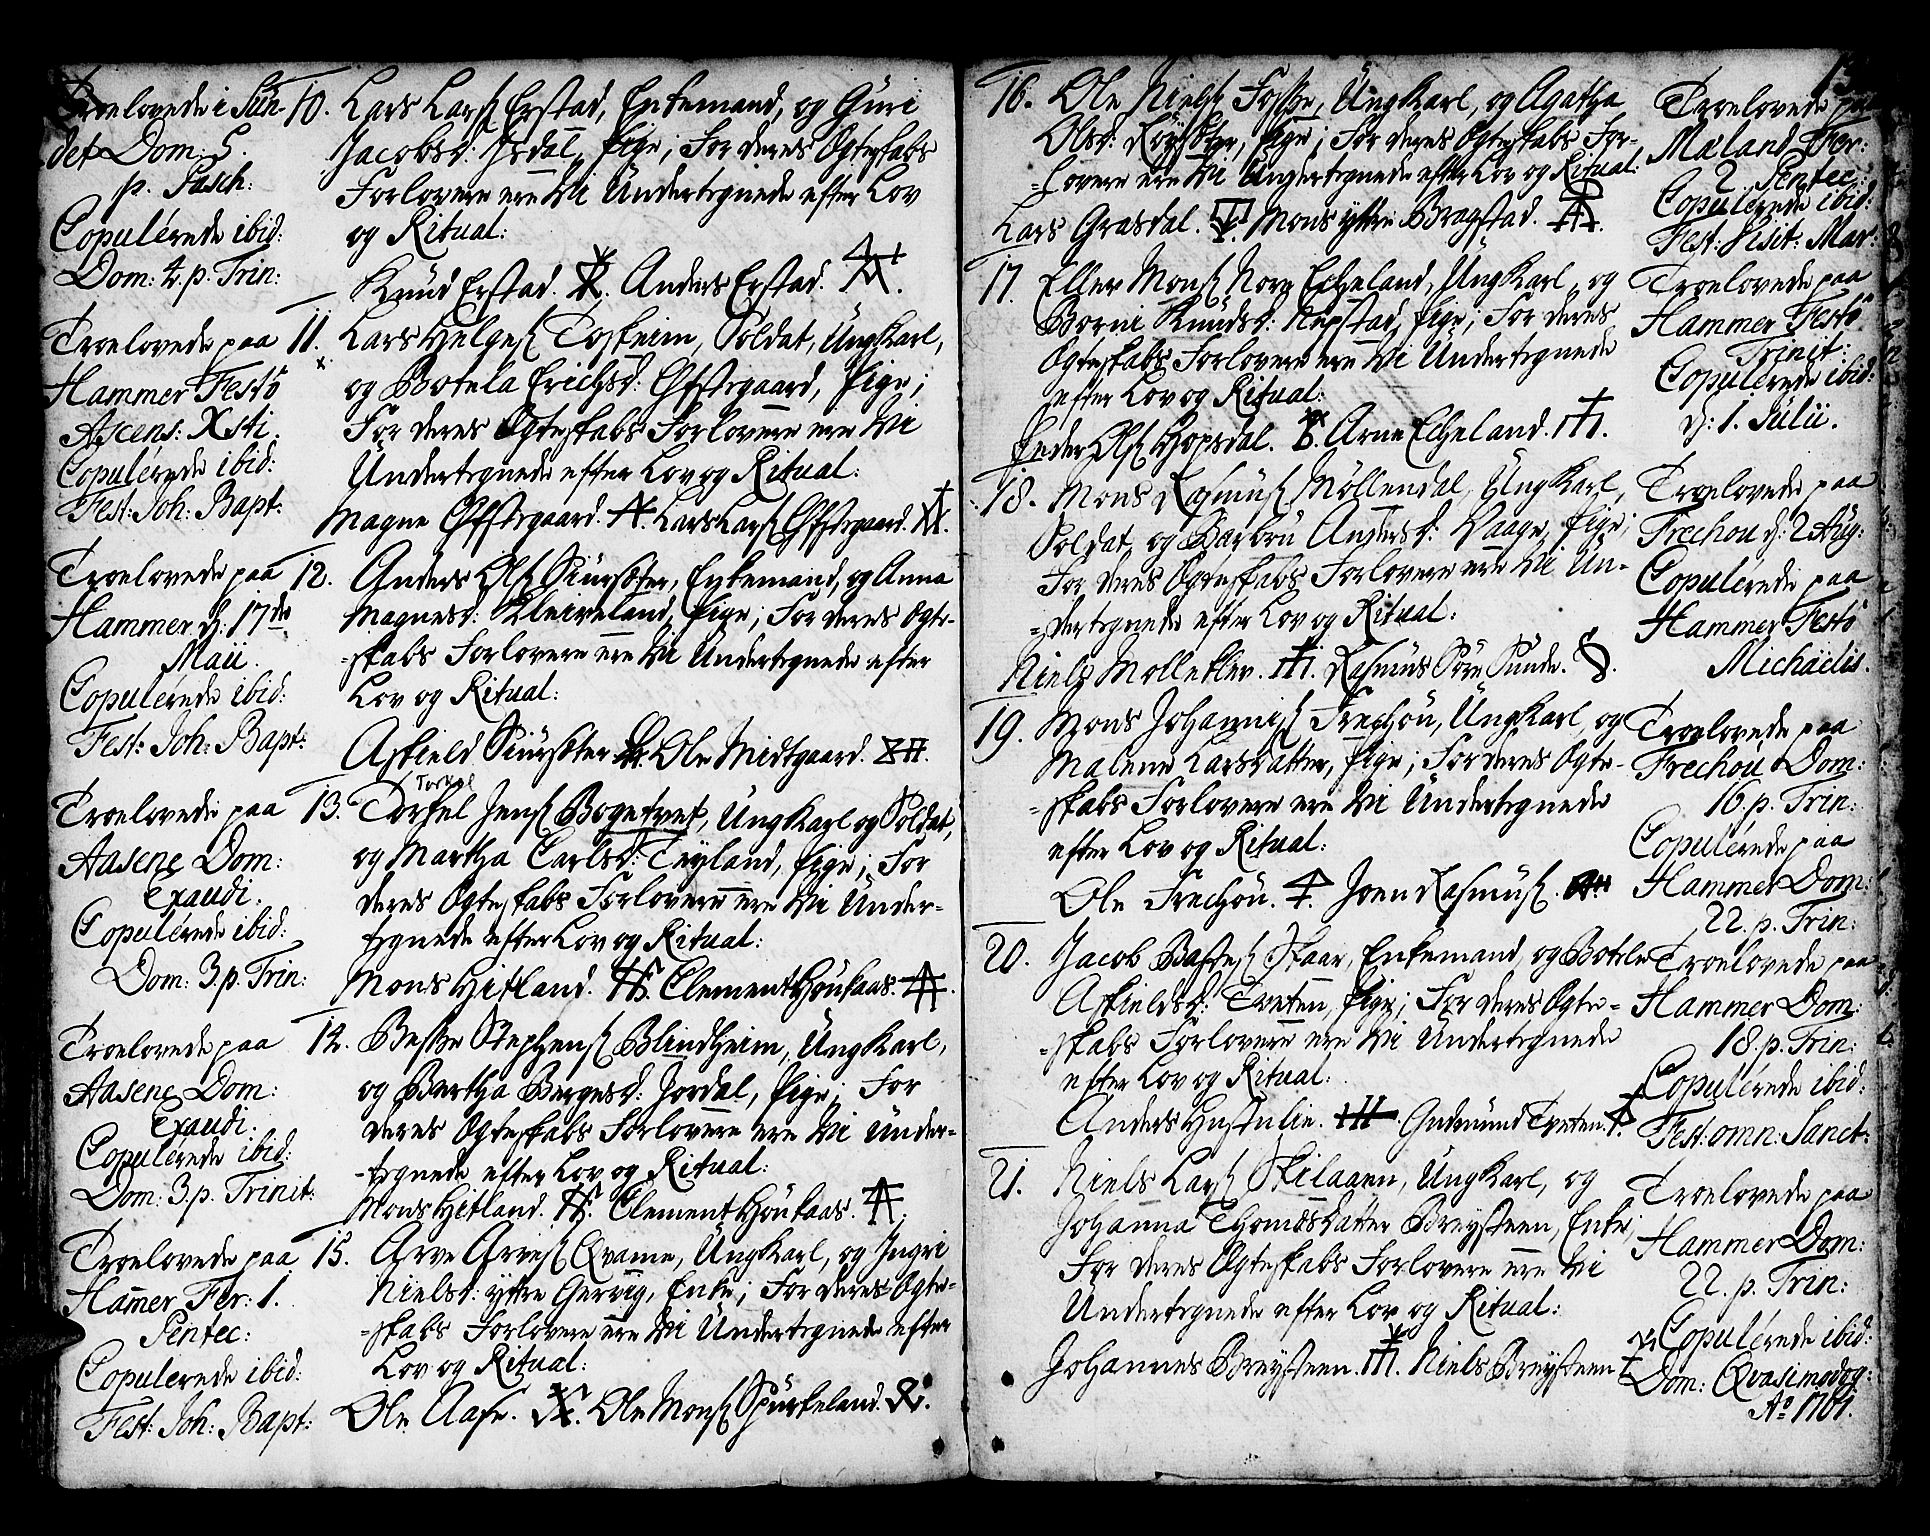 Troelovede i Sün-
det Dom: 5.
p. Pasch:
Copulérede ibid:
Dom: 4. p. Trin:
10. Lars Lars: Erstad, Enkemand, og Güri
Jacobsd: Isdal, Pige; For deres Ægteskabs
Forlovere ere Vi Ündertegnede efter Lov
og Ritual:
Knüd Erstad. Anders Erstad.
Troelovede paa
Hammer Festo
Ascens: Xsti.
Copulérede ibid:
Fest: Joh: Bapt:
11. Lars Helges: Toskeim, Soldat, Üng Karl,
og Botela Erichsd: Øfstegaard, Pige;
For deres Ægteskabs Forlovere ere Vi
Ündertegnede efter Lov og Ritual:
Magne Øfstegaard. Lars Lars: Øfstegaard.
Troelovede paa
Hammer d: 17de
Maii.
Copulérede ibid:
Fest: Joh: Bapt:
12. Anders Ols: Siürsæter, Enkemand, og Anna
Magnesd: Kleiveland, Pige; For deres Ægte-
-skabs Forlovere ere Vi Ündertegnede efter
Lov og Ritual:
Askield Siürsæter Ole Midtgaard.
Troelovede paa
Aasene Dom:
Exaudi.
Copulérede ibid:
Dom: 3. p. Trin:
Torkel
13. Torkel Jens: Bogetvet, Üng Karl og Soldat,
og Martha Carlsd: Teyland, Pige; For
deres Ægteskabs Forlovere ere Vi Ünder-
tegnede efter Lov og Ritual:
Mons Hitland. Clement Høukaas.
Troelovede paa
Aasene Dom:
Exaudi.
Copulérede ibid:
Dom: 3. p. Trinit:
14. Beske Stephens: Blindheim, Üng Karl,
og Bartha Bergesd: Jordal, Pige; For
deres Ægteskabs Forlovere ere Vi Ünder-
-tegnede efter Lov og Ritual:
Mons Hitland. Clement Høukaas.
Troelovede paa
Hamer Fer: 1.
Pentec:
Copulérede ibid:
Fest: Joh: Bapt:
15. Arve Arves: Qvame, Üng Karl, og Ingri
Nielsd: ytre Gervig, Enke; For deres Ægte-
-skabs Forlovere ere Vi Ündertegnede efter
Lov og Ritual:
Ole Aase. Ole Mons: Spürkeland.
16. Ole Niels: Fosse, Üng Karl, og Agatha
Olsd: Røysæter, Pige; For deres Ægteskabs For-
-lovere ere Vi Ündertegnede efter Lov og Ritual:
Lars Grasdal. Mons ytre Bragstad.
Troelovede paa
Mæland Fer:
2. Pentec:
Copulérede ibid:
Fest: Visit: Mar:
17. Eller Mons: Nore Echeland, Üng Karl, og
Borni Knüdsd: Nepstad, Pige; For deres
Ægteskabs Forlovere ere Vi Ündertegnede
efter Lov og Ritual:
Peder Ols: Hopsdal. Arne Echeland.
Troelovede paa
Hammer Festo
Trinit:
Copulérede ibid:
d: 1. Julii.
18. Mons Rasmüs: Möllendal, Üng Karl,
Soldat, og Barbrü Andersd: Vaage, Pige;
For deres Ægteskabs Forlovere ere Vi Ün-
-dertegnede efter Lov og Ritual:
Niels Molleklev. Rasmüs Søre Sunde.
Troelovede paa
Frechou d: 2 Aüg:
Copulérede paa
Hammer Festo
Michaëlis.
19. Mons Johannis: Frechou, Üng Karl, og
Malene Larsdatter, Pige; For deres Ægte-
-skabs Forlovere ere Vi Ündertegnede
efter Lov og Ritual:
Ole Frechou. Joen Rasmüs:
Troelovede paa
Frechou Dom:
16. p. Trin:
Copulérede paa
Hammer Dom:
22. p. Trin:
20. Jacob Bastes: Skaar, Enkemand, og Botele
Askieldsd: Tveten, Pige; For deres Ægte-
-skabs Forlovere ere Vi Ündertegnede
efter Lov og Ritual:
Anders Hustulie. Gudmünd Tveten.
Troelovede paa
Hammer Dom:
18. p. Trin:
Copulérede ibid:
Fest: omn: Sanct:
21. Niels Lars: Skilaaen, Üng Karl, og
Johanna Thomdsdatter Breysteen, Enke;
For deres Ægteskabs Forlovere ere Vi
Ündertegnede efter Lov og Ritual:
Johannes Breysteen. Niels Breysteen
Troelovede paa
Hammer Dom:
22. p. Trin:
Copulérede ibid:
Dom: Qvasimodog:
Ao 1761.